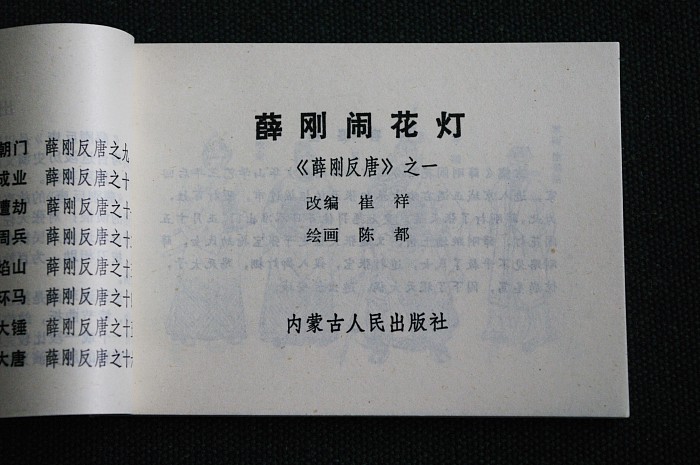 朝门 薛刚反唐之九
成业 薛刚反唐之十
遭劫 薛刚反唐之十
周兵 薛刚反唐之十
焰山 薛刚反唐之十
环马 薛刚反唐之十
大锤 薛刚反唐之十
大唐 薛刚反唐之十
薛刚闹花灯
《薛刚反唐》之一
改编 崔祥
绘画 陈都
内蒙古人民出版社